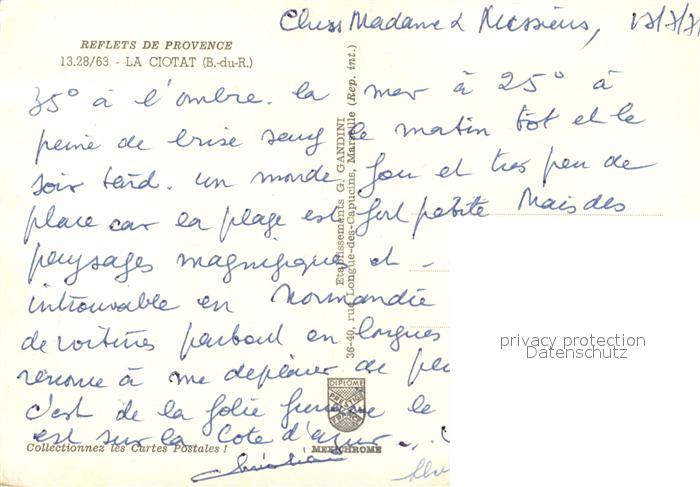 Chers Madame & Messieurs, 17/7/71
REFLETS DE PROVENCE
13.28/63 - LA CIOTAT (B.-du-R.)
35° à l'ombre. la mer à 25° à
peine de brise sauf le matin tot et le
soir tard. un monde fou et tres peu de
place car la plage est fort petite Mais des
paysages magnifiques et -
introuvable en Normandie
de voitures partout en longues
renonce à me deplacer de peu
c'est de la folie furieuse le
est sur la Cote d'azur
Collectionnez les Cartes Postales !
Etablissements G. GANDINI
36-40, rue Longue-des-Capucins, Marseille (Rep. int.)
DIPLOME
PRESTIGE
FRANCE
MEXICHROME
privacy protection
Datenschutz